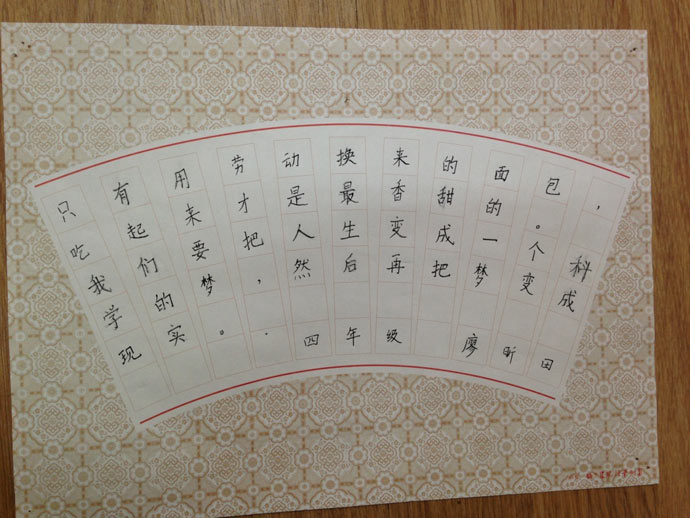 只有用劳动换来的面包,
吃起来才是最香甜的。
我们要把人生变成一个科
学的梦,然后再把梦变成
现实。 四年级 廖昕田